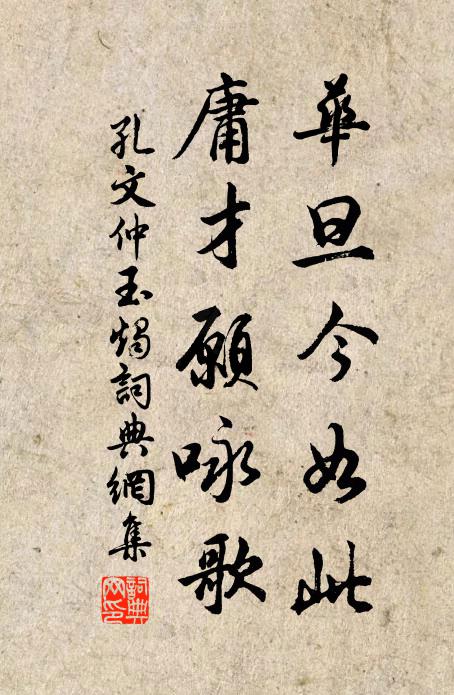 華旦今如此
庸才願咏歌
孔文仲玉燭詞典網集
詞典網印